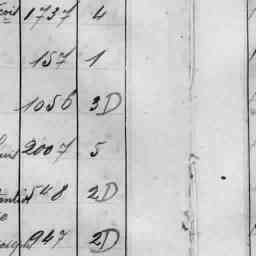 1737 4
157 1
1056 3D
2007 5
548 2D
947 2D